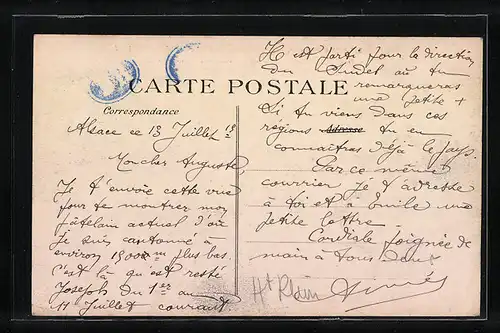 CARTE POSTALE
Correspondance
Alsace ce 13 Juillet
Mon cher Auguste
Je t'envoie cette vue
pour te montrer mon
patelain actuel d'où
je suis cantonné à
environ plus bas.
c'est là qu'est resté
Joseph du 1er au
11 Juillet courant.
Il est parti pour la direction
du où tu
remarqueras
une petite +
Si tu viens dans ces
régions Adresse tu en
connaîtras déjà le pays.
Par ce même
courrier je t'adresse
à toi et à Emile une
petite lettre
Cordiale poignée de
main à tous
Ht Rhin